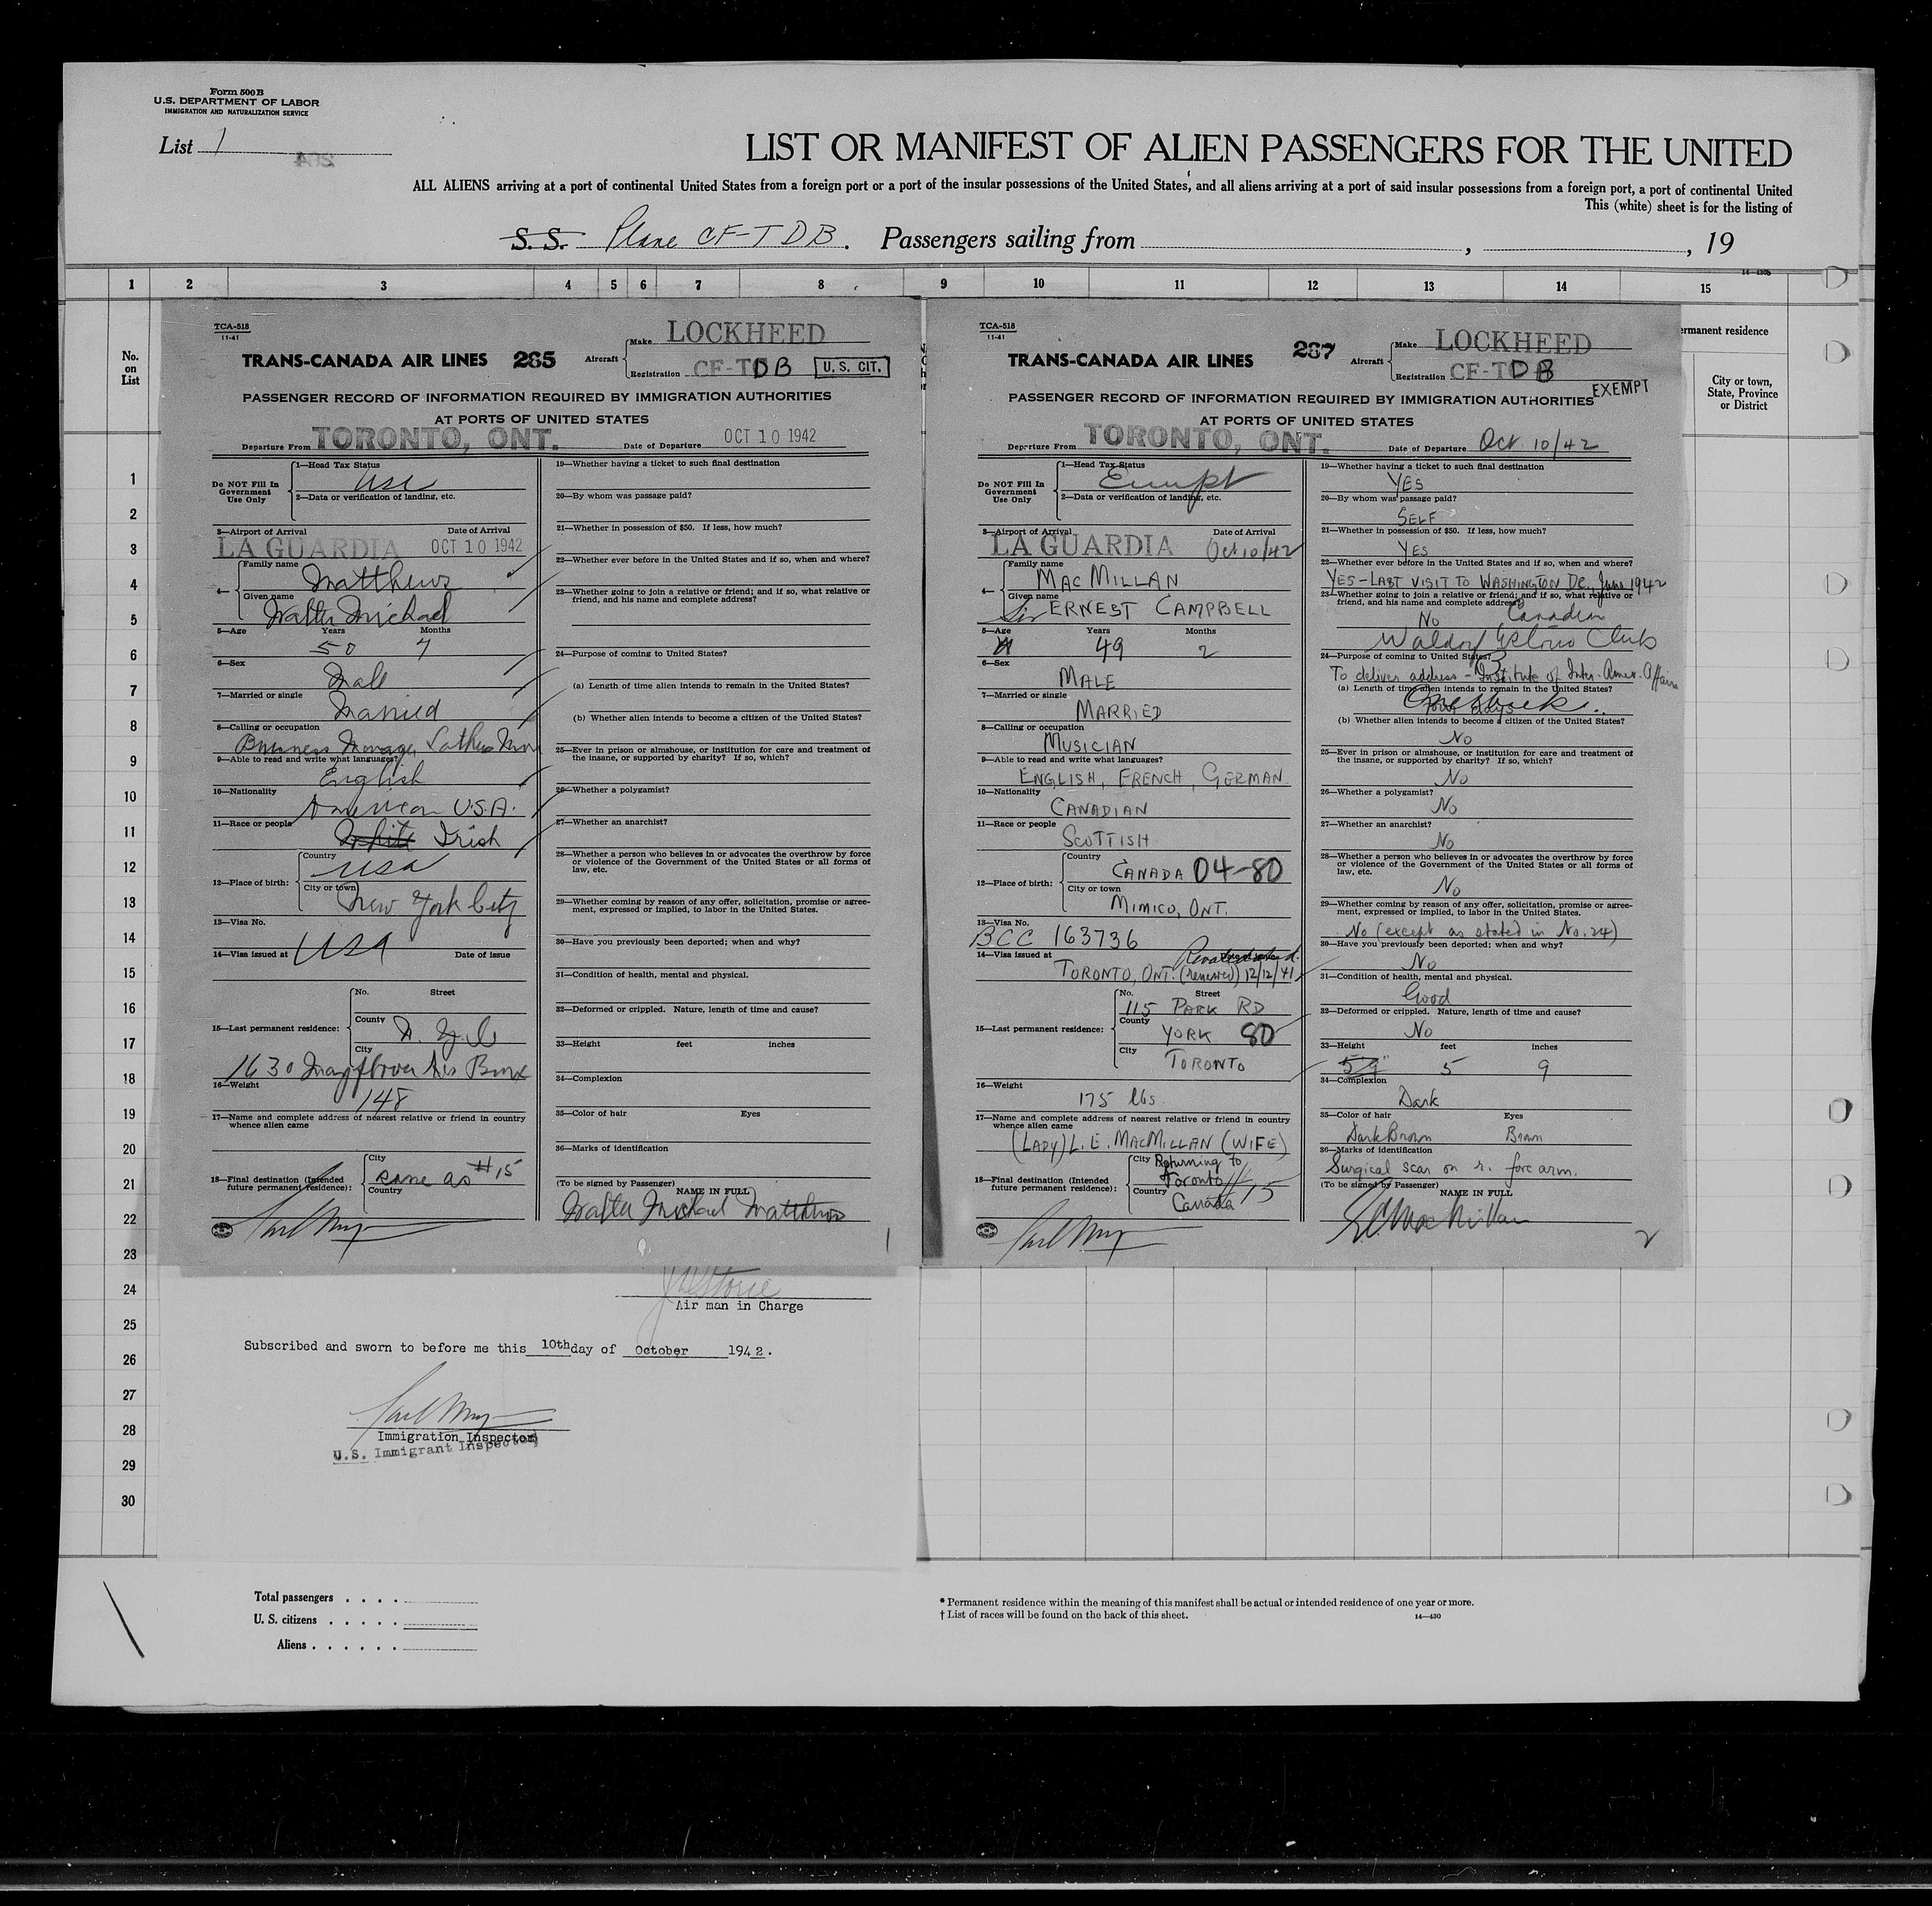 Form 500B
U.S. DEPARTMENT OF LABOR
IMMIGRATION AND NATURALIZATION SERVICE
List 1
LIST OR MANIFEST OF ALIEN PASSENGERS FOR THE UNITED
ALL ALIENS arriving at a port of continental United States from a foreign port or a port of the insular possessions of the United States, and all aliens arriving at a port of said insular possessions from a foreign port, a port of continental United
This (white) sheet is for the listing of
S.S. Plane CF-TDB. Passengers sailing from , , 19
14—430b
1 2 3 4 5 6 7 8 9 10 11 12 13 14 15
No. on List
ermanent residence
City or town, State, Province or District
1
2
3
4
5
6
7
8
9
10
11
12
13
14
15
16
17
18
19
20
21
22
23
24
25
26
27
28
29
30
TCA-518
11-41
TRANS-CANADA AIR LINES 285
Aircraft
Make LOCKHEED
Registration CF-TDB
U. S. CIT.
PASSENGER RECORD OF INFORMATION REQUIRED BY IMMIGRATION AUTHORITIES
AT PORTS OF UNITED STATES
Departure From TORONTO, ONT. Date of Departure OCT 10 1942
Do NOT Fill In Government Use Only
1—Head Tax Status
USC
2—Data or verification of landing, etc.
3—Airport of Arrival Date of Arrival
LA GUARDIA OCT 10 1942
4— Family name
Matthews
Given name
Walter Michael
5—Age Years Months
50 7
6—Sex
Male
7—Married or single
Married
8—Calling or occupation
Business Manager
9—Able to read and write what languages?
English
10—Nationality
American U.S.A.
11—Race or people
White Irish
12—Place of birth:
Country
USA
City or town
New York City
13—Visa No.
USA
14—Visa issued at Date of issue
15—Last permanent residence:
No. Street
County
N.Y.C
City
1630 Mayflower Ave Bronx
16—Weight
148
17—Name and complete address of nearest relative or friend in country whence alien came
18—Final destination (Intended future permanent residence):
City
same as #15
Country
19—Whether having a ticket to such final destination
20—By whom was passage paid?
21—Whether in possession of $50. If less, how much?
22—Whether ever before in the United States and if so, when and where?
23—Whether going to join a relative or friend; and if so, what relative or friend, and his name and complete address?
24—Purpose of coming to United States?
(a) Length of time alien intends to remain in the United States?
(b) Whether alien intends to become a citizen of the United States?
25—Ever in prison or almshouse, or institution for care and treatment of the insane, or supported by charity? If so, which?
26—Whether a polygamist?
27—Whether an anarchist?
28—Whether a person who believes in or advocates the overthrow by force or violence of the Government of the United States or all forms of law, etc.
29—Whether coming by reason of any offer, solicitation, promise or agreement, expressed or implied, to labor in the United States.
30—Have you previously been deported; when and why?
31—Condition of health, mental and physical.
32—Deformed or crippled. Nature, length of time and cause?
33—Height feet inches
34—Complexion
35—Color of hair Eyes
36—Marks of identification
(To be signed by Passenger) NAME IN FULL
Walter Michael Matthews
1
TCA-518
11-41
TRANS-CANADA AIR LINES 287
Aircraft
Make LOCKHEED
Registration CF-TDB
EXEMPT
PASSENGER RECORD OF INFORMATION REQUIRED BY IMMIGRATION AUTHORITIES
AT PORTS OF UNITED STATES
Departure From TORONTO, ONT. Date of Departure Oct 10/42
Do NOT Fill In Government Use Only
1—Head Tax Status
Exempt
2—Data or verification of landing, etc.
3—Airport of Arrival Date of Arrival
LA GUARDIA Oct 10/42
4— Family name
MACMILLAN
Given name
Sir ERNEST CAMPBELL
5—Age Years Months
49 2
6—Sex
MALE
7—Married or single
MARRIED
8—Calling or occupation
MUSICIAN
9—Able to read and write what languages?
ENGLISH, FRENCH, GERMAN
10—Nationality
CANADIAN
11—Race or people
SCOTTISH
12—Place of birth:
Country
CANADA 04-80
City or town
MIMICO, ONT.
13—Visa No.
BCC 163736
14—Visa issued at
TORONTO, ONT. (renewed) 12/12/41
15—Last permanent residence:
No. Street
115 PARK RD
County
YORK 80
City
TORONTO
16—Weight
175 lbs
17—Name and complete address of nearest relative or friend in country whence alien came
(LADY) L. E. MACMILLAN (WIFE)
18—Final destination (Intended future permanent residence):
City Returning to
Toronto #15
Country
Canada
19—Whether having a ticket to such final destination
YES
20—By whom was passage paid?
SELF
21—Whether in possession of $50. If less, how much?
YES
22—Whether ever before in the United States and if so, when and where?
YES - LAST VISIT TO WASHINGTON DC, June 1942
23—Whether going to join a relative or friend; and if so, what relative or friend, and his name and complete address?
No Canadian
Waldorf Astoria Club
24—Purpose of coming to United States?
To deliver address - Institute of Inter-Amer. Affairs
(a) Length of time alien intends to remain in the United States?
One week
(b) Whether alien intends to become a citizen of the United States?
No
25—Ever in prison or almshouse, or institution for care and treatment of the insane, or supported by charity? If so, which?
No
26—Whether a polygamist?
No
27—Whether an anarchist?
No
28—Whether a person who believes in or advocates the overthrow by force or violence of the Government of the United States or all forms of law, etc.
No
29—Whether coming by reason of any offer, solicitation, promise or agreement, expressed or implied, to labor in the United States.
No (except as stated in No. 24)
30—Have you previously been deported; when and why?
No
31—Condition of health, mental and physical.
Good
32—Deformed or crippled. Nature, length of time and cause?
No
33—Height feet inches
5'9" 5 9
34—Complexion
Dark
35—Color of hair Eyes
Dark Brown Brown
36—Marks of identification
Surgical scar on r. forearm.
(To be signed by Passenger) NAME IN FULL
E.C. MacMillan
2
Air man in Charge
Subscribed and sworn to before me this 10th day of October 1942.
Immigration Inspector
U.S. Immigrant Inspector
Total passengers . . . .
U. S. citizens . . . . .
Aliens . . . . . .
* Permanent residence within the meaning of this manifest shall be actual or intended residence of one year or more.
† List of races will be found on the back of this sheet.
14—430